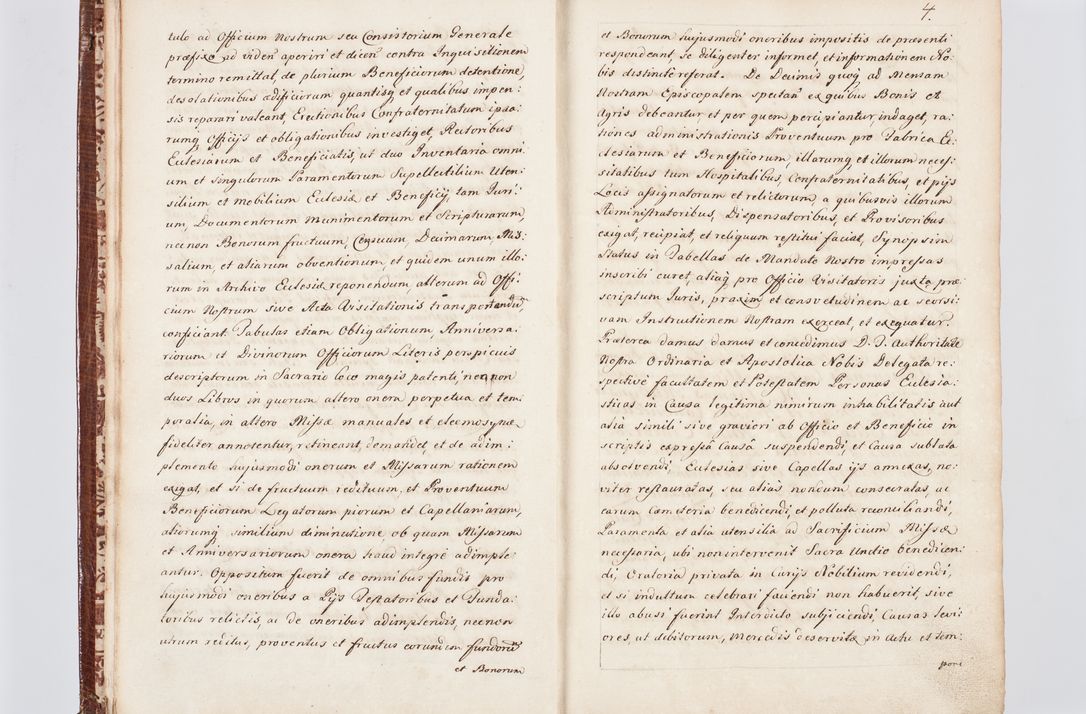 tulo ad Officium Nostrum seu Consistorium Generale
præfixo ad viden̄ aperiri et dicen̄ contra Inquisitionem
termino remittat, de plurium Beneficiorum detentione,
desolationibus ædificiorum quantisq̨ et qualibus impen:
sis reparari valeant, Erectionibus Confraternitatum ipsa:
rumq̨ Officijs et obligationibus investiget, Rectoribus
Ecclesiarum et Beneficiatis, ut duo Inventaria omni
um et singulorum Paramentorum Supellectilium Uten:
silium et mobilium Ecclesiæ et Beneficij, tam Juri:
um, Documentorum munimentorum et Scripturarum,
necnon Bonorum fructuum, Censuum, Decimarum, Mis
salium, et aliarum obventionum, et quidem unum illo:
rum in Archivo Ecclesiæ reponendum, alterum ad Offi
cium Nostrum sive Acta Visitationis transportandū,
conficiant. Tabulas etiam Obligationum, Anniversa:
riorum et Divinorum Officiorum Literis perspicuis
descriptorum in Sacrario loco magis patenti, necnon
duos Libros in quorum altero onera perpetua et tem
poralia, in altero Missæ manuales et eleemosynæ
fideliter annotentur, retineant, demandet, et de adim:
plemento hujusmodi onorum et Missarum rationem
exigat, et si de fructuum redituum, et Proventuum
Beneficiorum Legatorum piorum et Capellaniarum,
aliorumq̨ similium diminutione, ob quam Missarum
et Anniversariorum onera haud integrè adimple
antur. Oppositum fuerit de omnibus fundis pro
hujusmodi oneribus a Pijs Testatoribus et Funda:
toribus relictis, ac de oneribus adimplendis, necnon
utrum reditus, proventus et fructus eorundem fundorū
et Bonorum
4.
et Bonorum hujusmodi oneribus impositis de præsenti
respondeant, se diligenter informet, et informationem No:
bis distinctè referat. De Decimis quoq̨ ad Mensam
Nostram Episcopalem spectan̄ ex quibus Bonis et
Agris debeantur et per quem percipiantur, indaget, ra:
tiones administrationis Proventuum pro Fabrica Ec:
clesiarum et Beneficiorum, illorumq̨ et illorum neces:
sitatibus tum Hospitalibus, Confraternitatibus, et pijs
Locis assignatorum et relictorum, a quibusvis illorum
Administratoribus, Dispensatoribus, et Provisoribus
exigat, recipiat, et reliquum restitui faciat, Synopsim
Status in Tabellas de Mandato Nostro impressas
inscribi curet, aliaq̨ pro Officio Visitatoris juxta præ
scriptum Juris, praxim et consvetudinem ac seorsi:
vam Instructionem Nostram exerceat, et exequatur.
Præterea damus damus et concedimus D. V. authoritate
Nostra Ordinaria et Apostolica Nobis Delegata re:
spectivè facultatem et Potestatem Personas Ecclesia:
sticas in Causa legitima nimirum inhabilitatis aut
aliâ simili sive graviori ab Officio et Beneficio in
scriptis expressâ Causâ suspendendi, et Causa sublata
absolvendi, Ecclesias sive Capellas ijs annexas, no:
viter restauratas, seu alias nondum consecratas, ac
earum Cæmeteria benedicendi, et polluta reconciliandi,
Paramenta et alia utensilia ad Sacrificium Missæ
necessaria, ubi non intervenit Sacra Unctio benedicen:
di, Oratoria privata in Curijs Nobilium revidendi,
et si indultum celebrari faciendi non habuerit, sive
illo abusi fuerint Interdicto subjiciendi, Causas levi:
ores, ut debitorum, Mercedis deservitæ in actu et tem:
pori